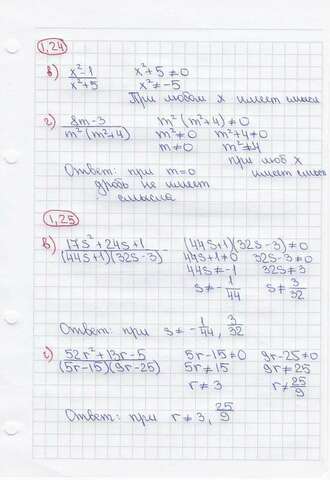 1.24
в) x²-1 / x²+5    x²+5≠0
x²≠-5
При любом x имеет смысл
г) 8m-3 / m²(m²+4)    m²(m²+4)≠0
m²≠0    m²+4≠0
m≠0    m²≠4
при люб x
Ответ: при m=0    имеет смысл
дробь не имеет
смысла
1.25
в) 17s²+24s+1 / (44s+1)(32s-3)    (44s+1)(32s-3)≠0
44s+1≠0    32s-3≠0
44s≠-1    32s≠3
s≠-1/44    s≠3/32
Ответ: при s≠-1/44, 3/32
г) 52r²+13r-5 / (5r-15)(9r-25)    5r-15≠0    9r-25≠0
5r≠15    9r≠25
r≠3    r≠25/9
Ответ: при r≠3, 25/9